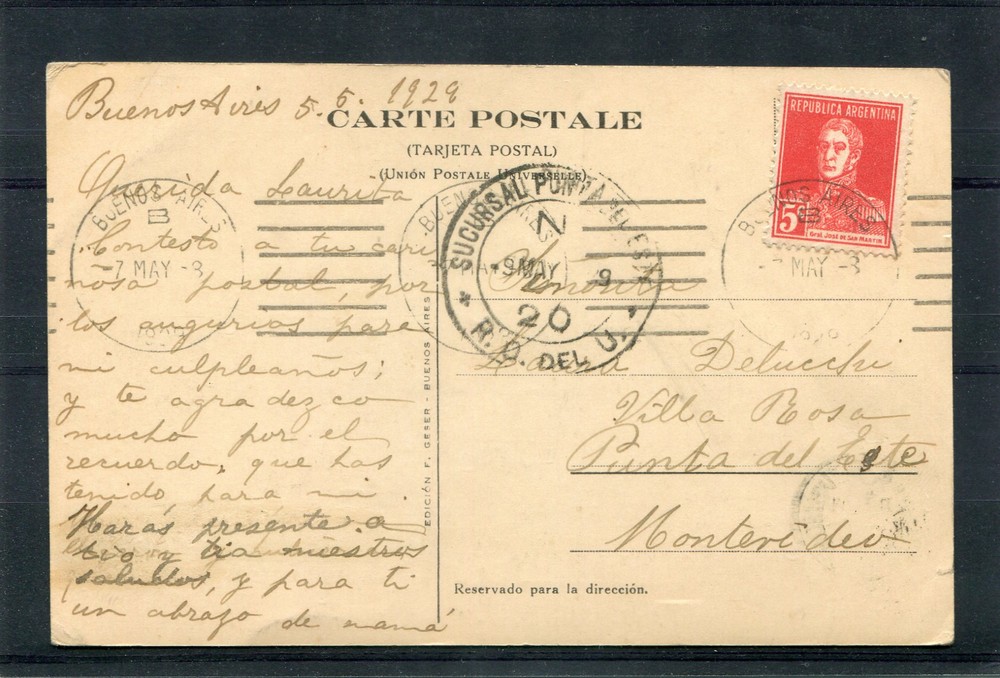 Buenos Aires 5. 5. 1929
CARTE POSTALE
(TARJETA POSTAL)
(Unión Postale Universelle)
REPUBLICA ARGENTINA
5c
Gral. José de San Martin
BUENOS AIRES
B
-7 MAY -8
BUENOS AIRES
B
-7 MAY -8
SUCURSAL PUNTA DEL ESTE
N
9 MAY 9
20
R.O. DEL U.
Querida Laurita
Contesto a tu cari
ñosa postal, por
los augurios para
mi culpleaños;
y te agradezco
mucho por el
recuerdo, que has
tenido para mi.
Harás presente a
tio y tia nuestros
saludos, y para ti
un abrazo de mamá
EDICIÓN F. GESER - BUENOS AIRES
Señorita
Laura Delucchi
Villa Rosa
Punta del Este
Montevideo
Reservado para la dirección.